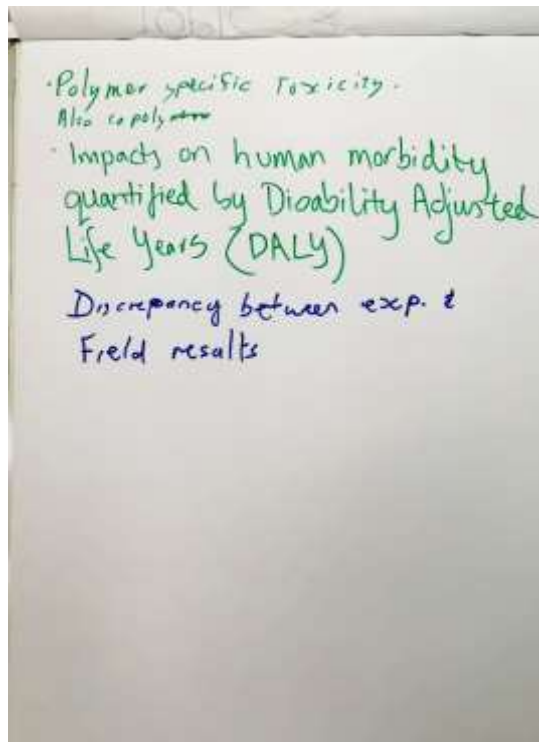 · Polymer specific Toxicity.
Also copoly
· Impacts on human morbidity
quantified by Disability Adjusted
Life Years (DALY)
Discrepancy between exp. &
Field results